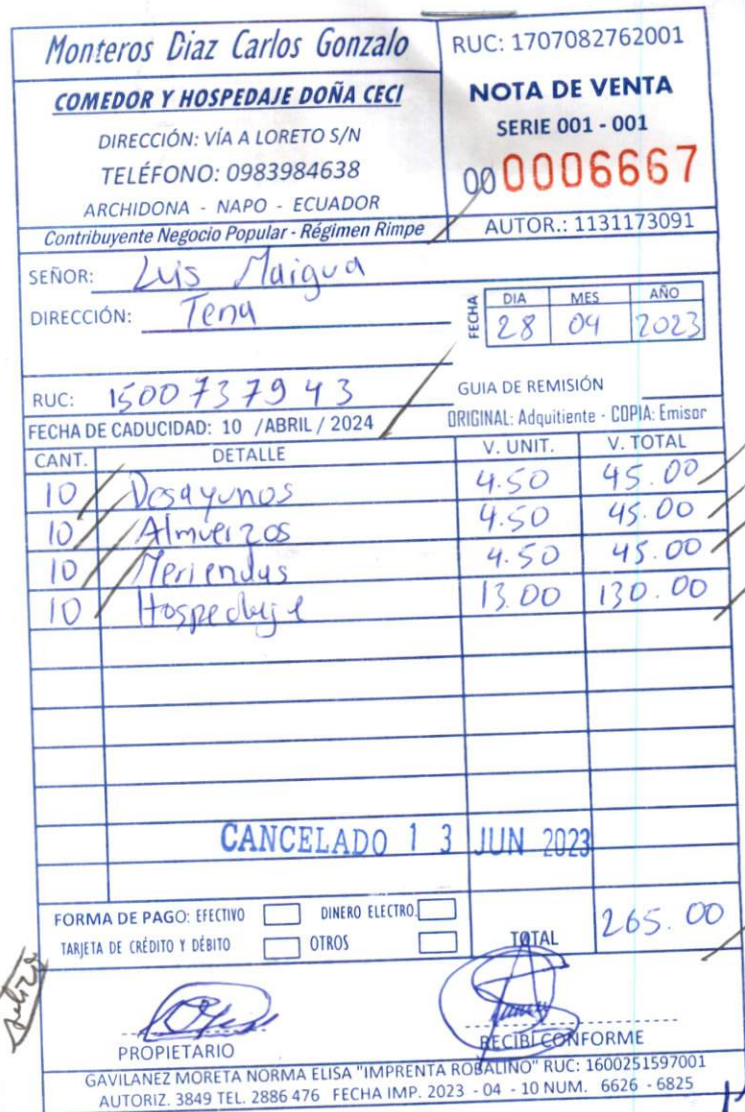 Monteros Diaz Carlos Gonzalo
COMEDOR Y HOSPEDAJE DOÑA CECI
DIRECCIÓN: VÍA A LORETO S/N
TELÉFONO: 0983984638
ARCHIDONA - NAPO - ECUADOR
Contribuyente Negocio Popular - Régimen Rimpe
RUC: 1707082762001
NOTA DE VENTA
SERIE 001 - 001
00 0006667
AUTOR.: 1131173091
SEÑOR: Luis Maigua
DIRECCIÓN: Tena
FECHA DIA MES AÑO
28 04 2023
RUC: 1500737943 GUIA DE REMISIÓN
FECHA DE CADUCIDAD: 10 /ABRIL / 2024 ORIGINAL: Adquitiente - COPIA: Emisor
CANT. DETALLE V. UNIT. V. TOTAL
10 Desayunos 4.50 45.00
10 Almuerzos 4.50 45.00
10 Meriendas 4.50 45.00
10 Hospedaje 13.00 130.00
CANCELADO 13 JUN 2023
FORMA DE PAGO: EFECTIVO DINERO ELECTRO.
TARJETA DE CRÉDITO Y DÉBITO OTROS
TOTAL 265.00
PROPIETARIO RECIBI CONFORME
GAVILANEZ MORETA NORMA ELISA "IMPRENTA ROBALINO" RUC: 1600251597001
AUTORIZ. 3849 TEL. 2886 476 FECHA IMP. 2023 - 04 - 10 NUM. 6626 - 6825